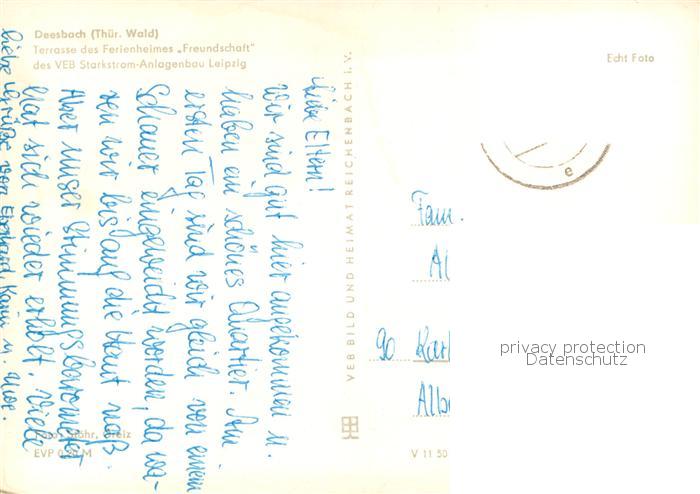 Deesbach (Thür. Wald)
Terrasse des Ferienheimes „Freundschaft"
des VEB Starkstrom-Anlagenbau Leipzig
Echt Foto
Liebe Eltern!
Wir sind gut hier angekommen u.
haben ein schönes Quartier. Am
ersten Tag sind wir gleich von einem
Schauer eingeweicht worden, da wa-
ren wir bis auf die Haut naß.
Aber unser Stimmungsbarometer
hat sich wieder erholt. Viele
liebe Grüße von Eberhard, Karin u. Uwe.
VEB BILD UND HEIMAT REICHENBACH i. V.
e
Fam.
Al
90 Karl
Albe
privacy protection
Datenschutz
Greiz
EVP 0,20 M
V 11 50